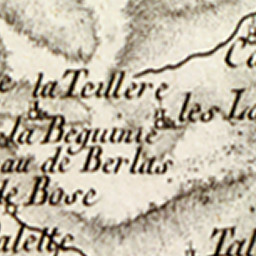 la Teullere
les
la Beguinie
au de Berlas
de Bose
alette
Tal